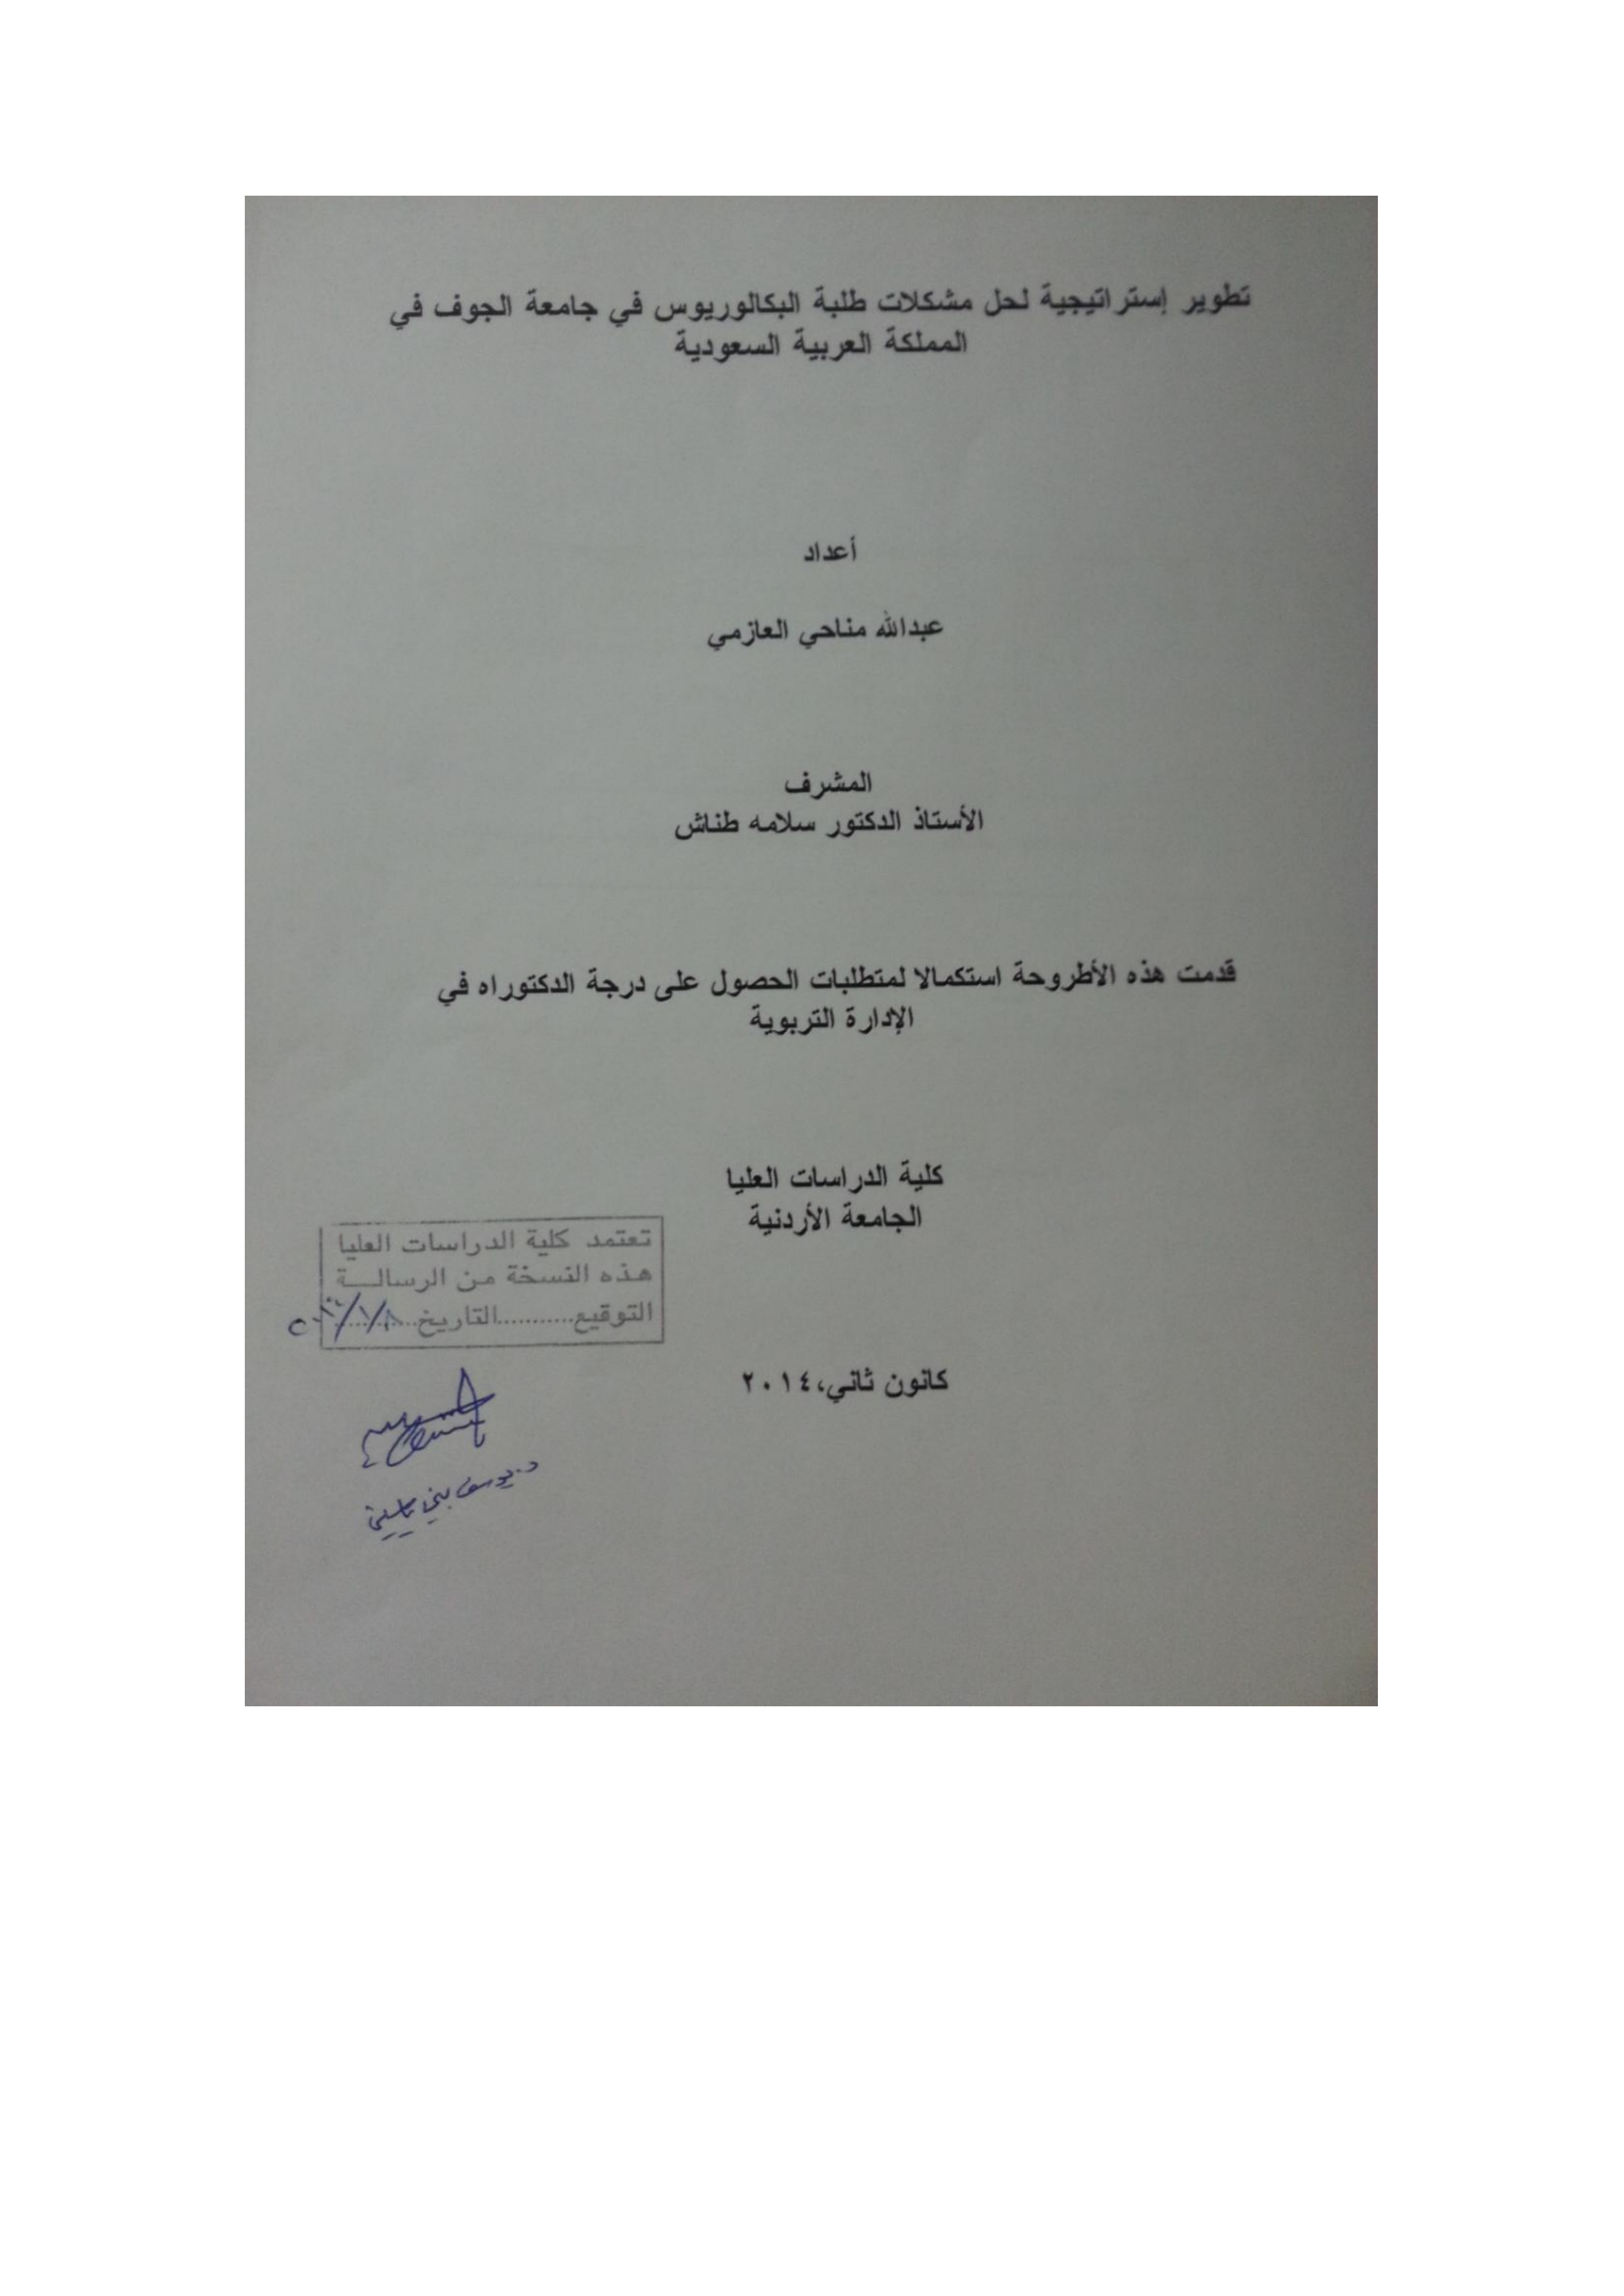 تطوير إستراتيجية لحل مشكلات طلبة البكالوريوس في جامعة الجوف في
المملكة العربية السعودية
أعداد
عبدالله مناحي العازمي
المشرف
الأستاذ الدكتور سلامه طناش
قدمت هذه الأطروحة استكمالا لمتطلبات الحصول على درجة الدكتوراه في
الإدارة التربوية
كلية الدراسات العليا
الجامعة الأردنية
تعتمد كلية الدراسات العليا
هذه النسخة من الرسالــة
التوقيع...........التاريخ............
كانون ثاني،٢٠١٤
د. يوسف بني ياسين